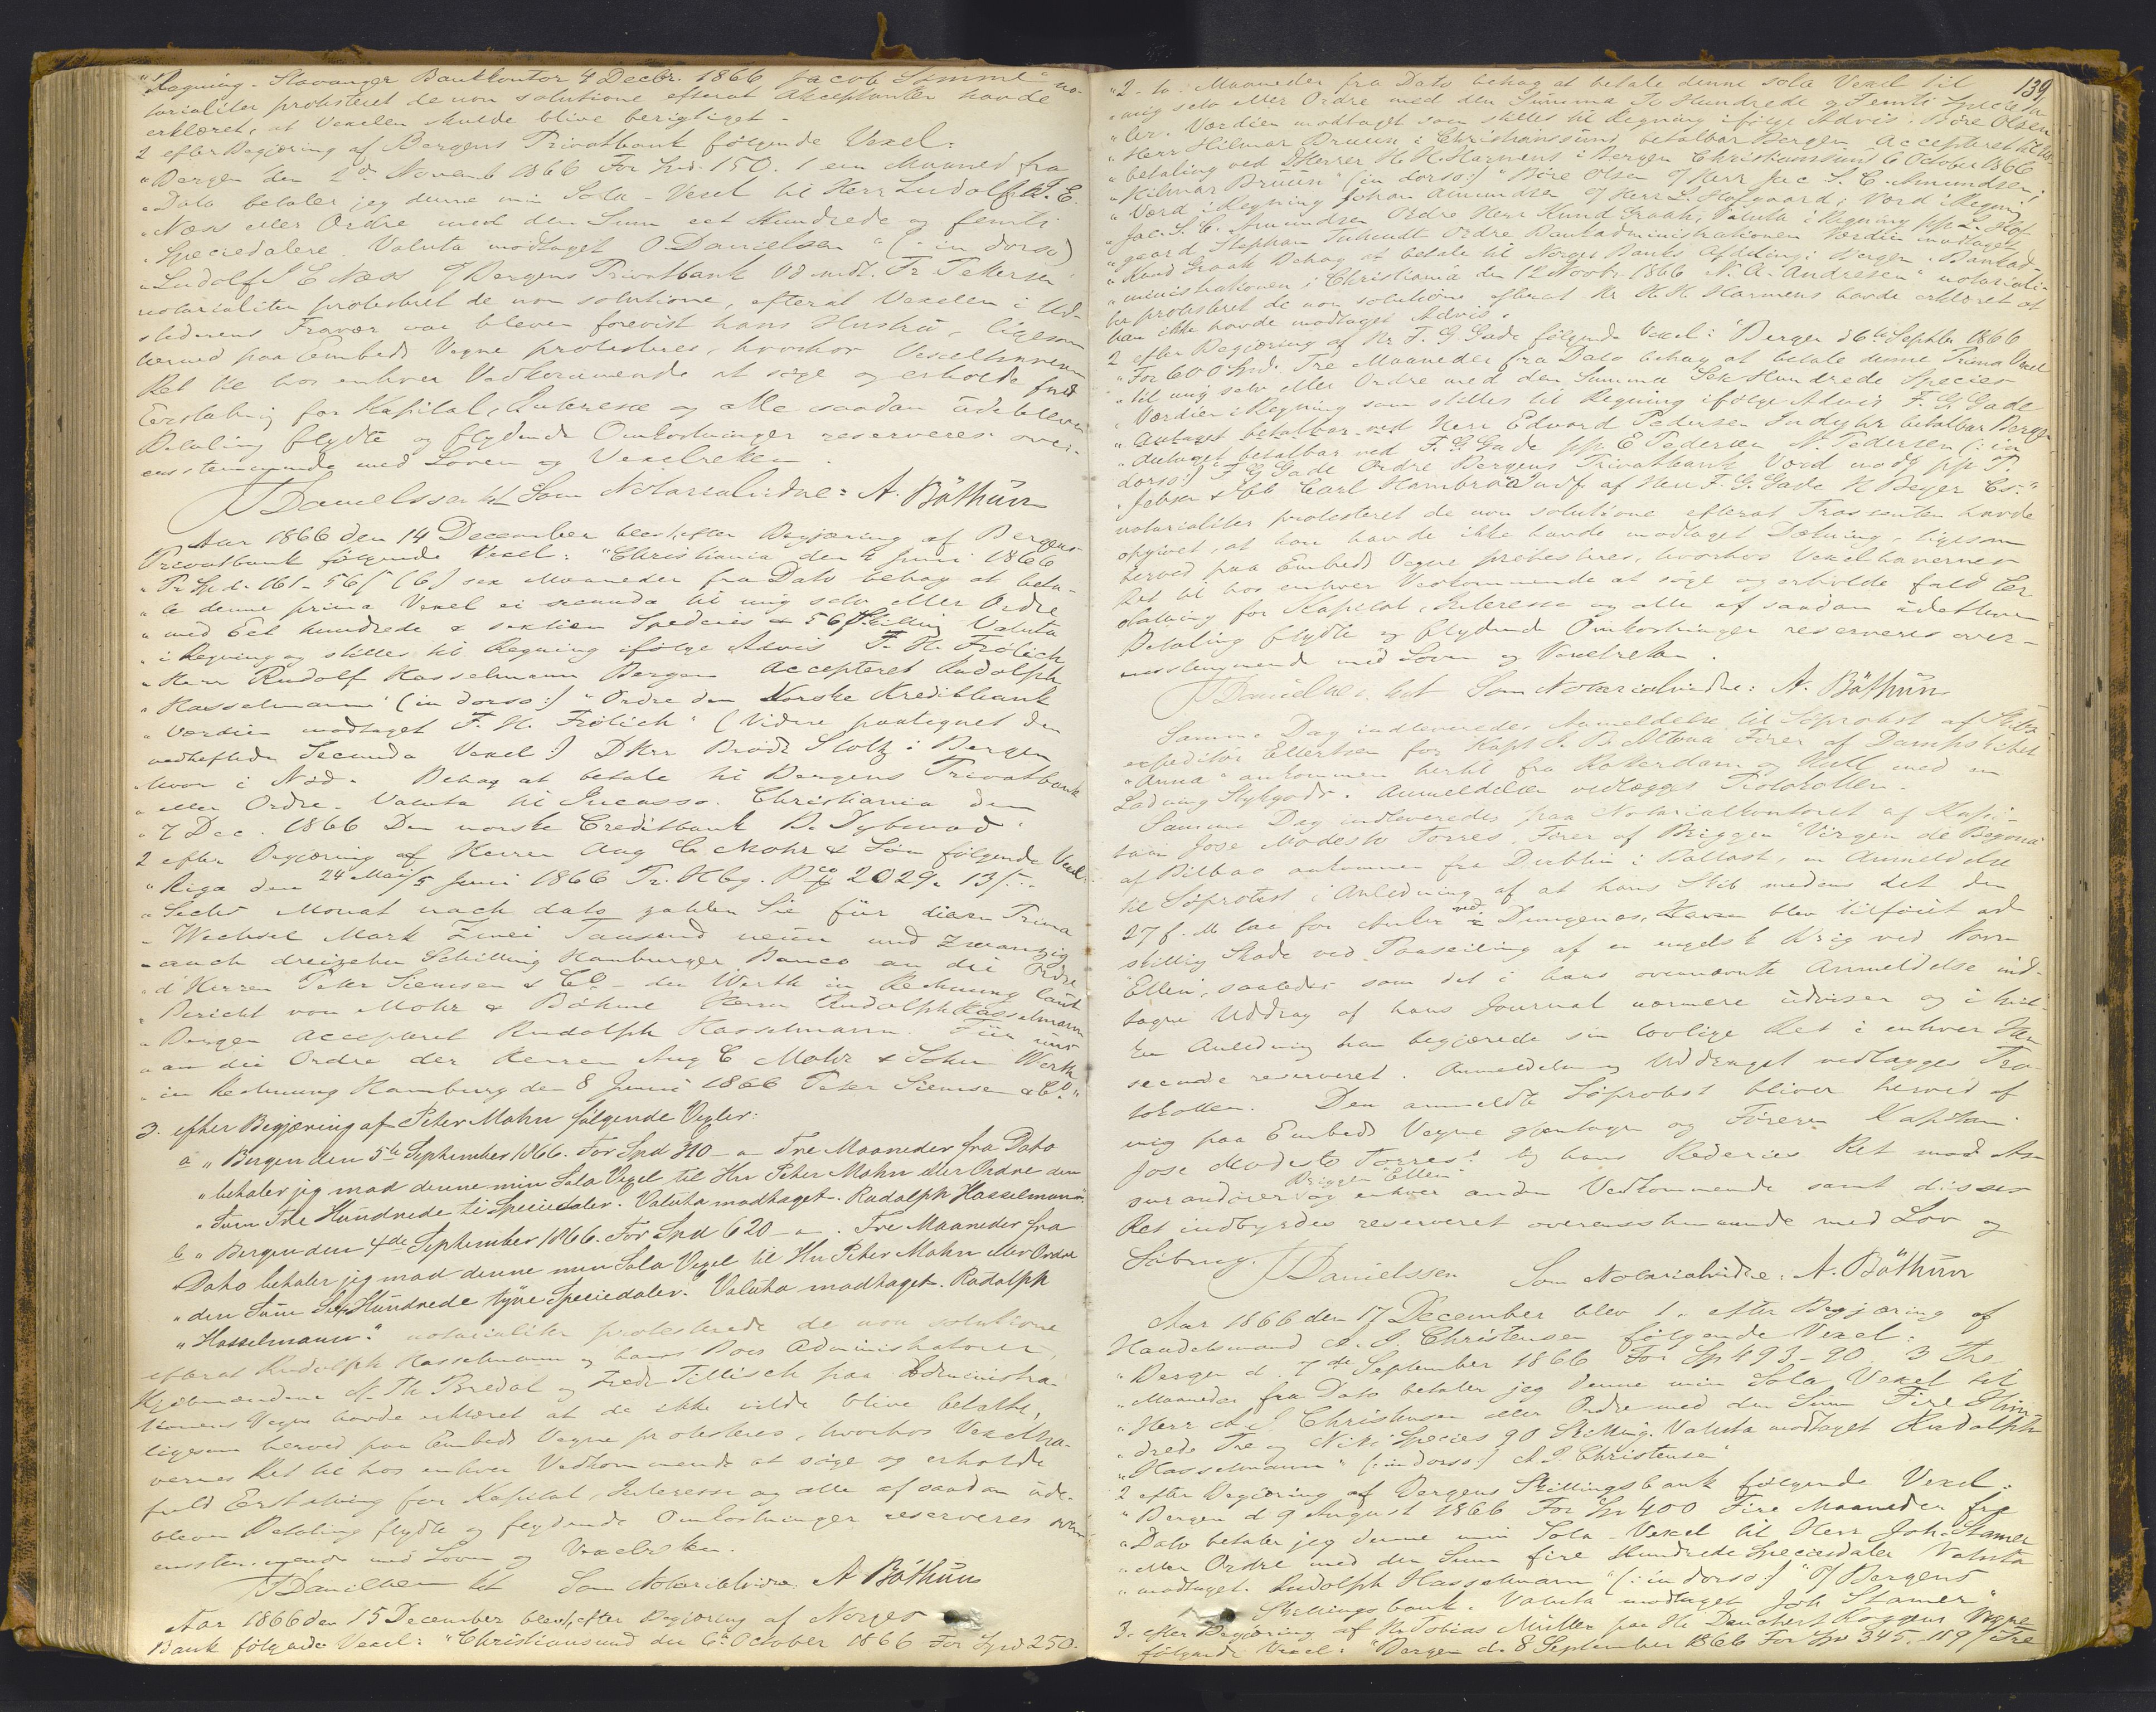 "Regning. Stavanger Bankkontor 4 Decbr. 1866 Jacob Sømme" no-
tarialiter protesteret de non solutione efterat Akceptanten havde
erklæret, at Vexelen skulde blive berigtiget.
2 efter Begjæring af Bergens Privatbank følgende Vexel:
"Bergen den 2de Novemb 1866 For Spd. 150. 1 een Maaned fra
"Dato betaler jeg denne min Sola-Vexel til Herr Ludolf J. E.
"Næss eller Ordre med den Sum eet Hundrede og femti
"Speciedalere. Valuta modtaget O. Danielsen" (: in dorso)
"Ludolf J E Næss Bergens Privatbank Fr Petersen"
notarialiter protesteret de non solutione, efterat Vexelen i Ud-
stederens Fravær var bleven forevist hans Hustru, ligesom
herved paa Embeds Vegne protesteres, hvorhos Vexelhaverens
Ret til hos enhver Vedkommende at søge og erholde fuld
Erstatning for Kapital, Interesse og alle saadan udebleven
Betaling flydte og flydende Omkostninger reserveres over-
ensstemmende med Loven og Vexelretten.
JDanielssen kst Som Notarialvidne: A. Böthun
Aar 1866 den 14 December blev 1, efter Begjæring af Bergens
Privatbank følgende Vexel: "Christiania den 4 Juni 1866
"Pr Sp.d. 161-56 ß (6) sex Maaneder fra Dato behag at beta-
"le denne prima Vexel ei secunda til mig selv eller Ordre
"med Eet hundrede & sextien Species & 56 Skilling Valuta
"i Regning og stilles til Regning ifølge Advis F. H. Frölich
"Herr Rudolf Hasselmann Bergen Accepteret Rudolph
"Hasselmann" (in dorso:) "Ordre den Norske Kreditbank
"Værdien modtaget F. H. Frölich" (Videre paategnet den
vedheftede Secunda Vexel:) DHrr Brødr Stoltz i Bergen
"hvor i Nød. Behag at betale til Bergens Privatbank
"eller Ordre. Valuta til Incasso. Christiania den
"7 Dec. 1866 Den norske Creditbank B. Dybwad"
2 efter Begjæring af Herrer Aug C. Mohr & Søn følgende Vexel:
"Riga den 24 Mai/5 Juni 1866 Pr. Hbg. Bco 2029. 13ß.
"Sechs Monat nach dato zahlen Sie für diesen Prima
"Wechsel Mark Zwei Tausend neun und Zwanzig
"auch dreizehn Schilling Hamburger Banco an die Ordre
"d Herren Peter Siemsen & Co. - den Werth in Rechnung laut
"Bericht von Mohr & Böhme Herrn Rudolph Hasselmann
"Bergen Accepteret Rudolph Hasselmann. Für uns
"an die Ordre der Herren Aug C Mohr & Sohn Werth
"in Rechnung Hamburg den 8 Juni 1866 Peter Siemsen & Co."
3. efter Begjæring af Peter Mohn følgende Vexler:
a "Bergen den 5te September 1866. For Spd 310 - Tre Maaneder fra Dato
"betaler jeg mod denne min Sola Vexel til Hr Peter Mohn eller Ordre den
"Sum Tre Hundrede ti Speciedaler. Valuta modtaget. Rudolph Hasselmann".
b "Bergen den 4de September 1866. For Spd 620 - . Tre Maaneder fra
"Dato betaler jeg mod denne min Sola Vexel til Hr Peter Mohn eller Ordre
"den Sum Sex Hundrede tyve Speciedaler. Valuta modtaget. Rudolph
"Hasselmann." notarialiter protesterede de non solutione
efterat Rudolph Hasselmann og hans Boes Administratorer,
Kjøbmændene N. Th Bredal og Fredr Tillisch paa Administra-
tionens Vegne havde erklæret at de ikke vilde blive betalte,
ligesom herved paa Embeds Vegne protesteres, hvorhos Vexelha-
vernes Ret til hos enhver Vedkommende at søge og erholde
fuld Erstatning for Kapital, Interesse og alle af saadan ude-
bleven Betaling flydte og flydende Omkostninger reserveres over-
ensstemmende med Loven og Vexelretten.
JDanielssen kst Som Notarialvidne A Böthun
Aar 1866 den 15 December blev 1, efter Begjæring af Norges
Bank følgende Vexel: "Christiansund den 6te October 1866 For Spd 250.
139
"2- to Maaneder fra Dato behag at betale denne sola Vexel til
"mig selv eller Ordre med den Summa To Hundrede og Femti Specieda-
"ler. Værdien modtaget som stilles til Regning ifølge Advis. Børe Olsen
"Herr Hilmar Bruun i Christianssund betalbar Bergen Accepteret til Ud-
"betaling ved DHerrer H. H. Harmens i Bergen Christianssund 6 October 1866
"Hilmar Bruun" (in dorso:) "Børe Olsen Herr Jac S. C. Amundsen,
"Værd i Regning Johan Amundsen Herr L. Hofgaard, Værd i Regning
"Jac. S. C. Amundsen Ordre Herr Knud Graah, Valuta i Regning pp L. Hof-
"gaard Stephan Tuhundt Ordre Bankadministrationen Værdien modtaget
"Knud Graah Behag at betale til Norges Banks Afdeling i Bergen. Bankad-
"ministrationen i Christiania den 12 Novbr. 1866 N. A. Andresen" notariali-
ter protesteret de non solutione efterat Hr H. H. Harmens havde erklæret at
han ikke havde modtaget Advis.
2 efter Begjæring af Hr F. G. Gade følgende Vexel: "Bergen d 6te Septbr 1866
"For 600 Spd. Tre Maaneder fra Dato behag at betale denne Prima Vexel
"til mig selv eller Ordre med den Summa Sex Hundrede Species
"Værdien i Regning som stilles til Regning ifølge Advis F. G. Gade
"Antaget betalbar ved Herr Edvard Pedersen betalbar Bergen
"Antaget betalbar ved F. G. Gade pp. E Pedersen N. Pedersen (: in
dorso:) "F G Gade Ordre Bergens Privatbank Værd modt pp P.
Jebsen & Co Carl Hambro af Herr F. G. Gade H Beyer Cs."
notarialiter protesteret de non solutione efterat Trassenten havde
opgivet, at han havde ikke havde modtaget Dækning, ligesom
herved paa Embeds Vegne protesteres, hvorhos Vexelhavernes
Ret til hos enhver Vedkommende at søge og erholde fuld Er-
statning for Kapital, Interesse og alle af saadan udebleven
Betaling flydte og flydende Omkostninger reserveres over-
ensstemmende med Loven og Vexelretten.
JDanielssen kst Som Notarialvidne: A. Böthun
Samme Dag indleveredes Anmeldelse til Søprotest af Skibs-
expeditør Ellertsen for Kapt J. B. Fører af Dampskibet
"Anna" ankommen hertil fra Rotterdam og Hull med en
Ladning Stykgods. Anmeldelsen vedlægges Protokollen.
Samme Dag indleveredes paa Notarialkontoret af Kapi-
tain Jose Modesto Torres, Fører af Briggen "Virgen de Begona"
af Bilbao ankommen fra Dublin i Ballast, en Anmeldelse
til Søprotest i Anledning af at hans Skib medens det den
27 f. M laa for Anker ved Dungenes, blev tilføiet ad-
skillig Skade ved Paaseiling af en engelsk Brig ved Navn
"Ellen", saaledes som det i hans ovennævnte Anmeldelse ind-
tagne Uddrag af hans Journal nærmere udviser og i hvil-
ken Anledning han begjærede sin lovlige Ret i enhver Hen-
seende reserveret. Anmeldelsen og Uddraget vedlægges Pro-
tokollen. Den anmeldte Søprotest bliver herved af
mig paa Embeds Vegne gjentagen og Føreren Kaptain
Jose Modesto Torres's og hans Rederies Ret mod As-
surandører, Briggen "Ellen" og enhver anden Vedkommende samt disses
Ret indbyrdes reserveret overensstemmende med Lov og
Søbrug. JDanielssen Som Notarialvidne: A. Böthun
Aar 1866 den 17 December blev 1. efter Begjæring af
Handelsmand A. J. Christensen følgende Vexel:
"Bergen d. 7de September 1866 For Sp 493-90. 3 Tre
"Maaneder fra Dato betaler jeg denne min Sola Vexel til
"Herr A J Christensen eller Ordre med den Sum Fire Hun-
"drede Tre og Niti Species 90 Skilling. Valuta modtaget Rudolph
"Hasselmann" (: in dorso:) A J. Christensen"
2 efter Begjæring af Bergens Skillingsbank følgende Vexel:
"Bergen d 9 August 1866 For Sp 400 Fire Maaneder fra
"Dato betaler jeg denne min Sola-Vexel til Herr Joh. Stamer
"eller Ordre med den Sum fire Hundrede Speciesdaler Valuta
"modtaget. Rudolph Hasselmann" (: in dorso:) "Bergens
Skillingsbank. Valuta modtaget Joh Stamer"
3. efter Begjæring af Hr Tobias Müller paa Hr Danchert Koggens Vegne
følgende Vexel: "Bergen d. 8 September 1866 For Sp 345. 119ß Tre